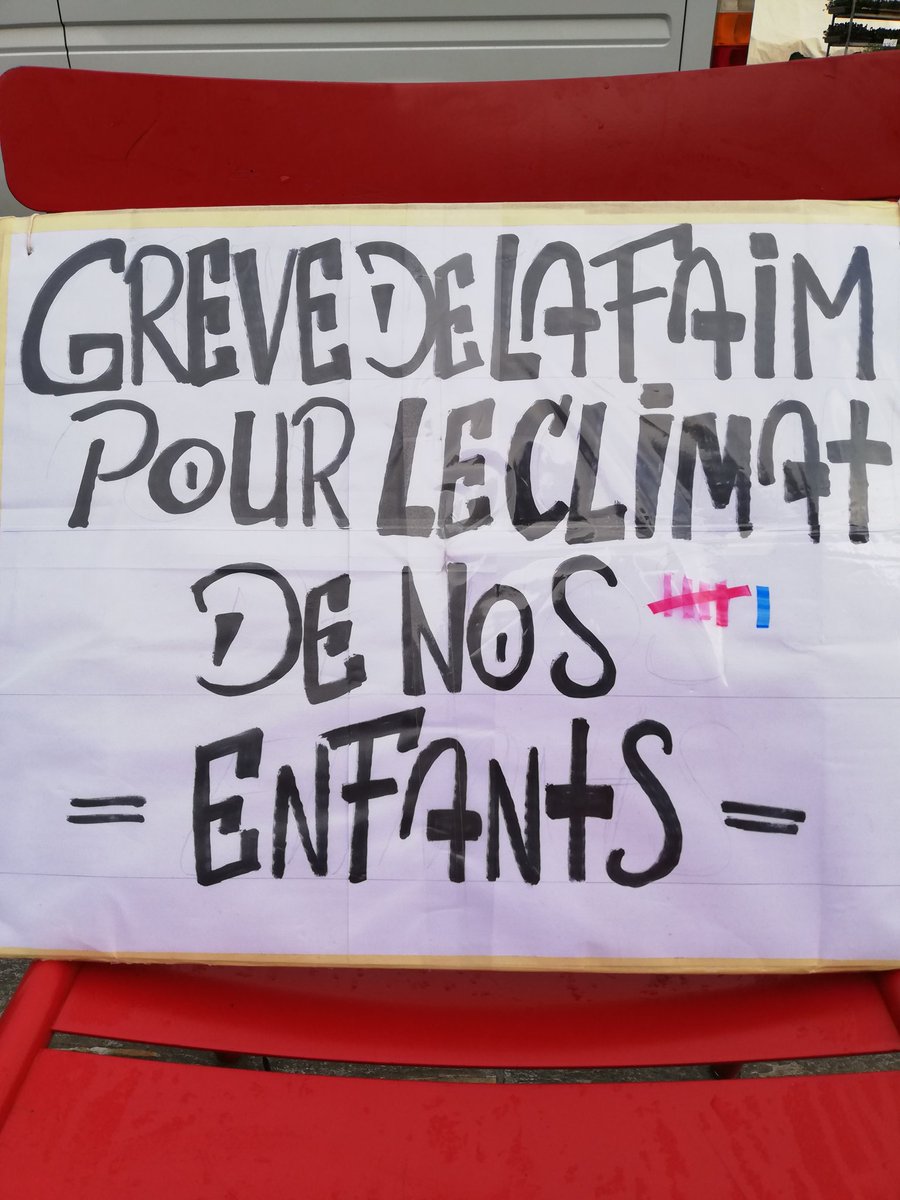 GREVE DE LA FAIM
POUR LE CLIMAT
DE NOS
= ENFANTS =